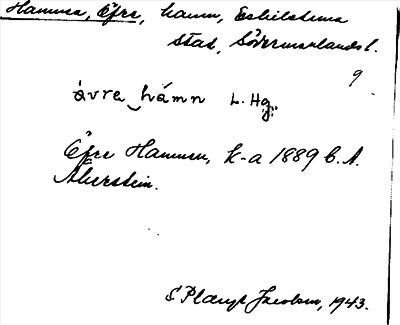 Hamnen, Öfre, hamn, Eskilstuna
stad, Södermanlands l.
9
ȧvre‿hámn L. Hg.
Öfre Hamnen, k-a 1889 b. A.
Akerstein.
S Plaryt Jacobson, 1943.